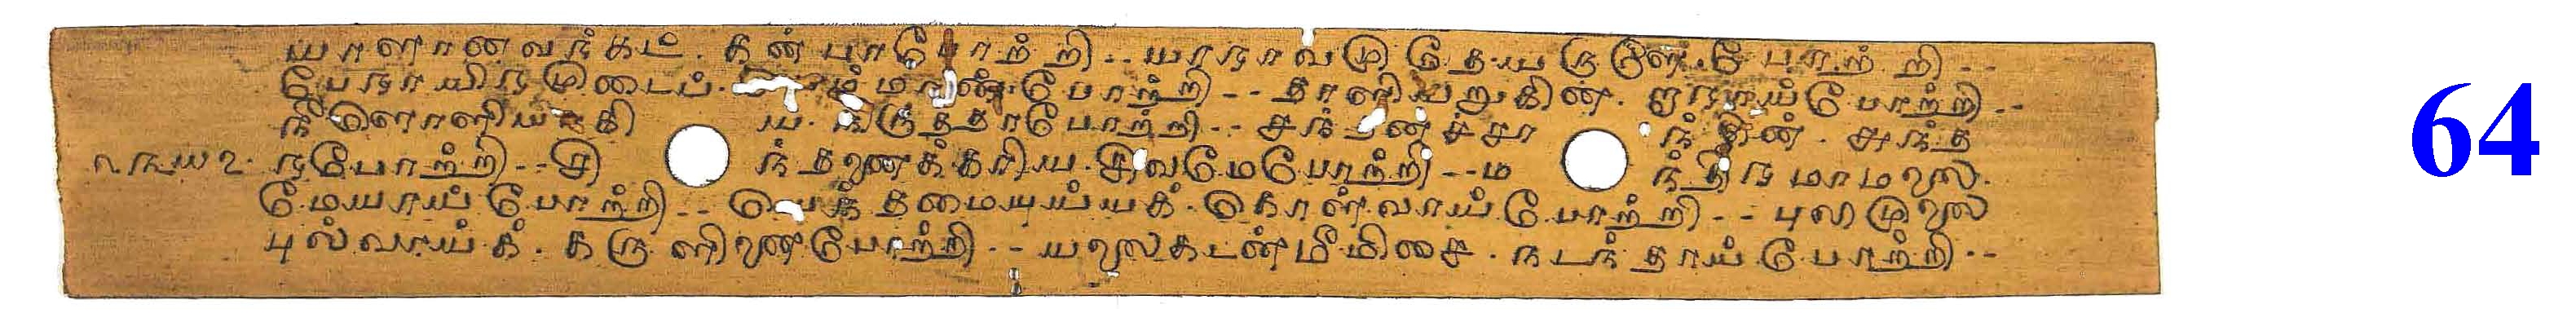 யாளானவர்கட். கன் பாபோற்றி -- யாராவமுதேயருளே.போற்றி --
பேராயிரமுடைப். பெம்மான்.போற்றி -- தாளியறுகின். றாராய்போற்றி --
நீளொளியாகிய. நிருத்தாபோற்றி -- சந்தனச்சாந்தின். சுந்த
௱௩௰௨. ரபோற்றி -- சிந்தனைக்கரிய.சிவமேபோற்றி -- மந்திரமாமலை.
மேயாய்போற்றி -- யெந்தமையுய்யக்.கொள்வாய்.போற்றி -- புலிமுலை
புல்வாய்க். கருளினை.போற்றி -- யலைகடன்மீமிசை. நடந்தாய்.போற்றி --
64